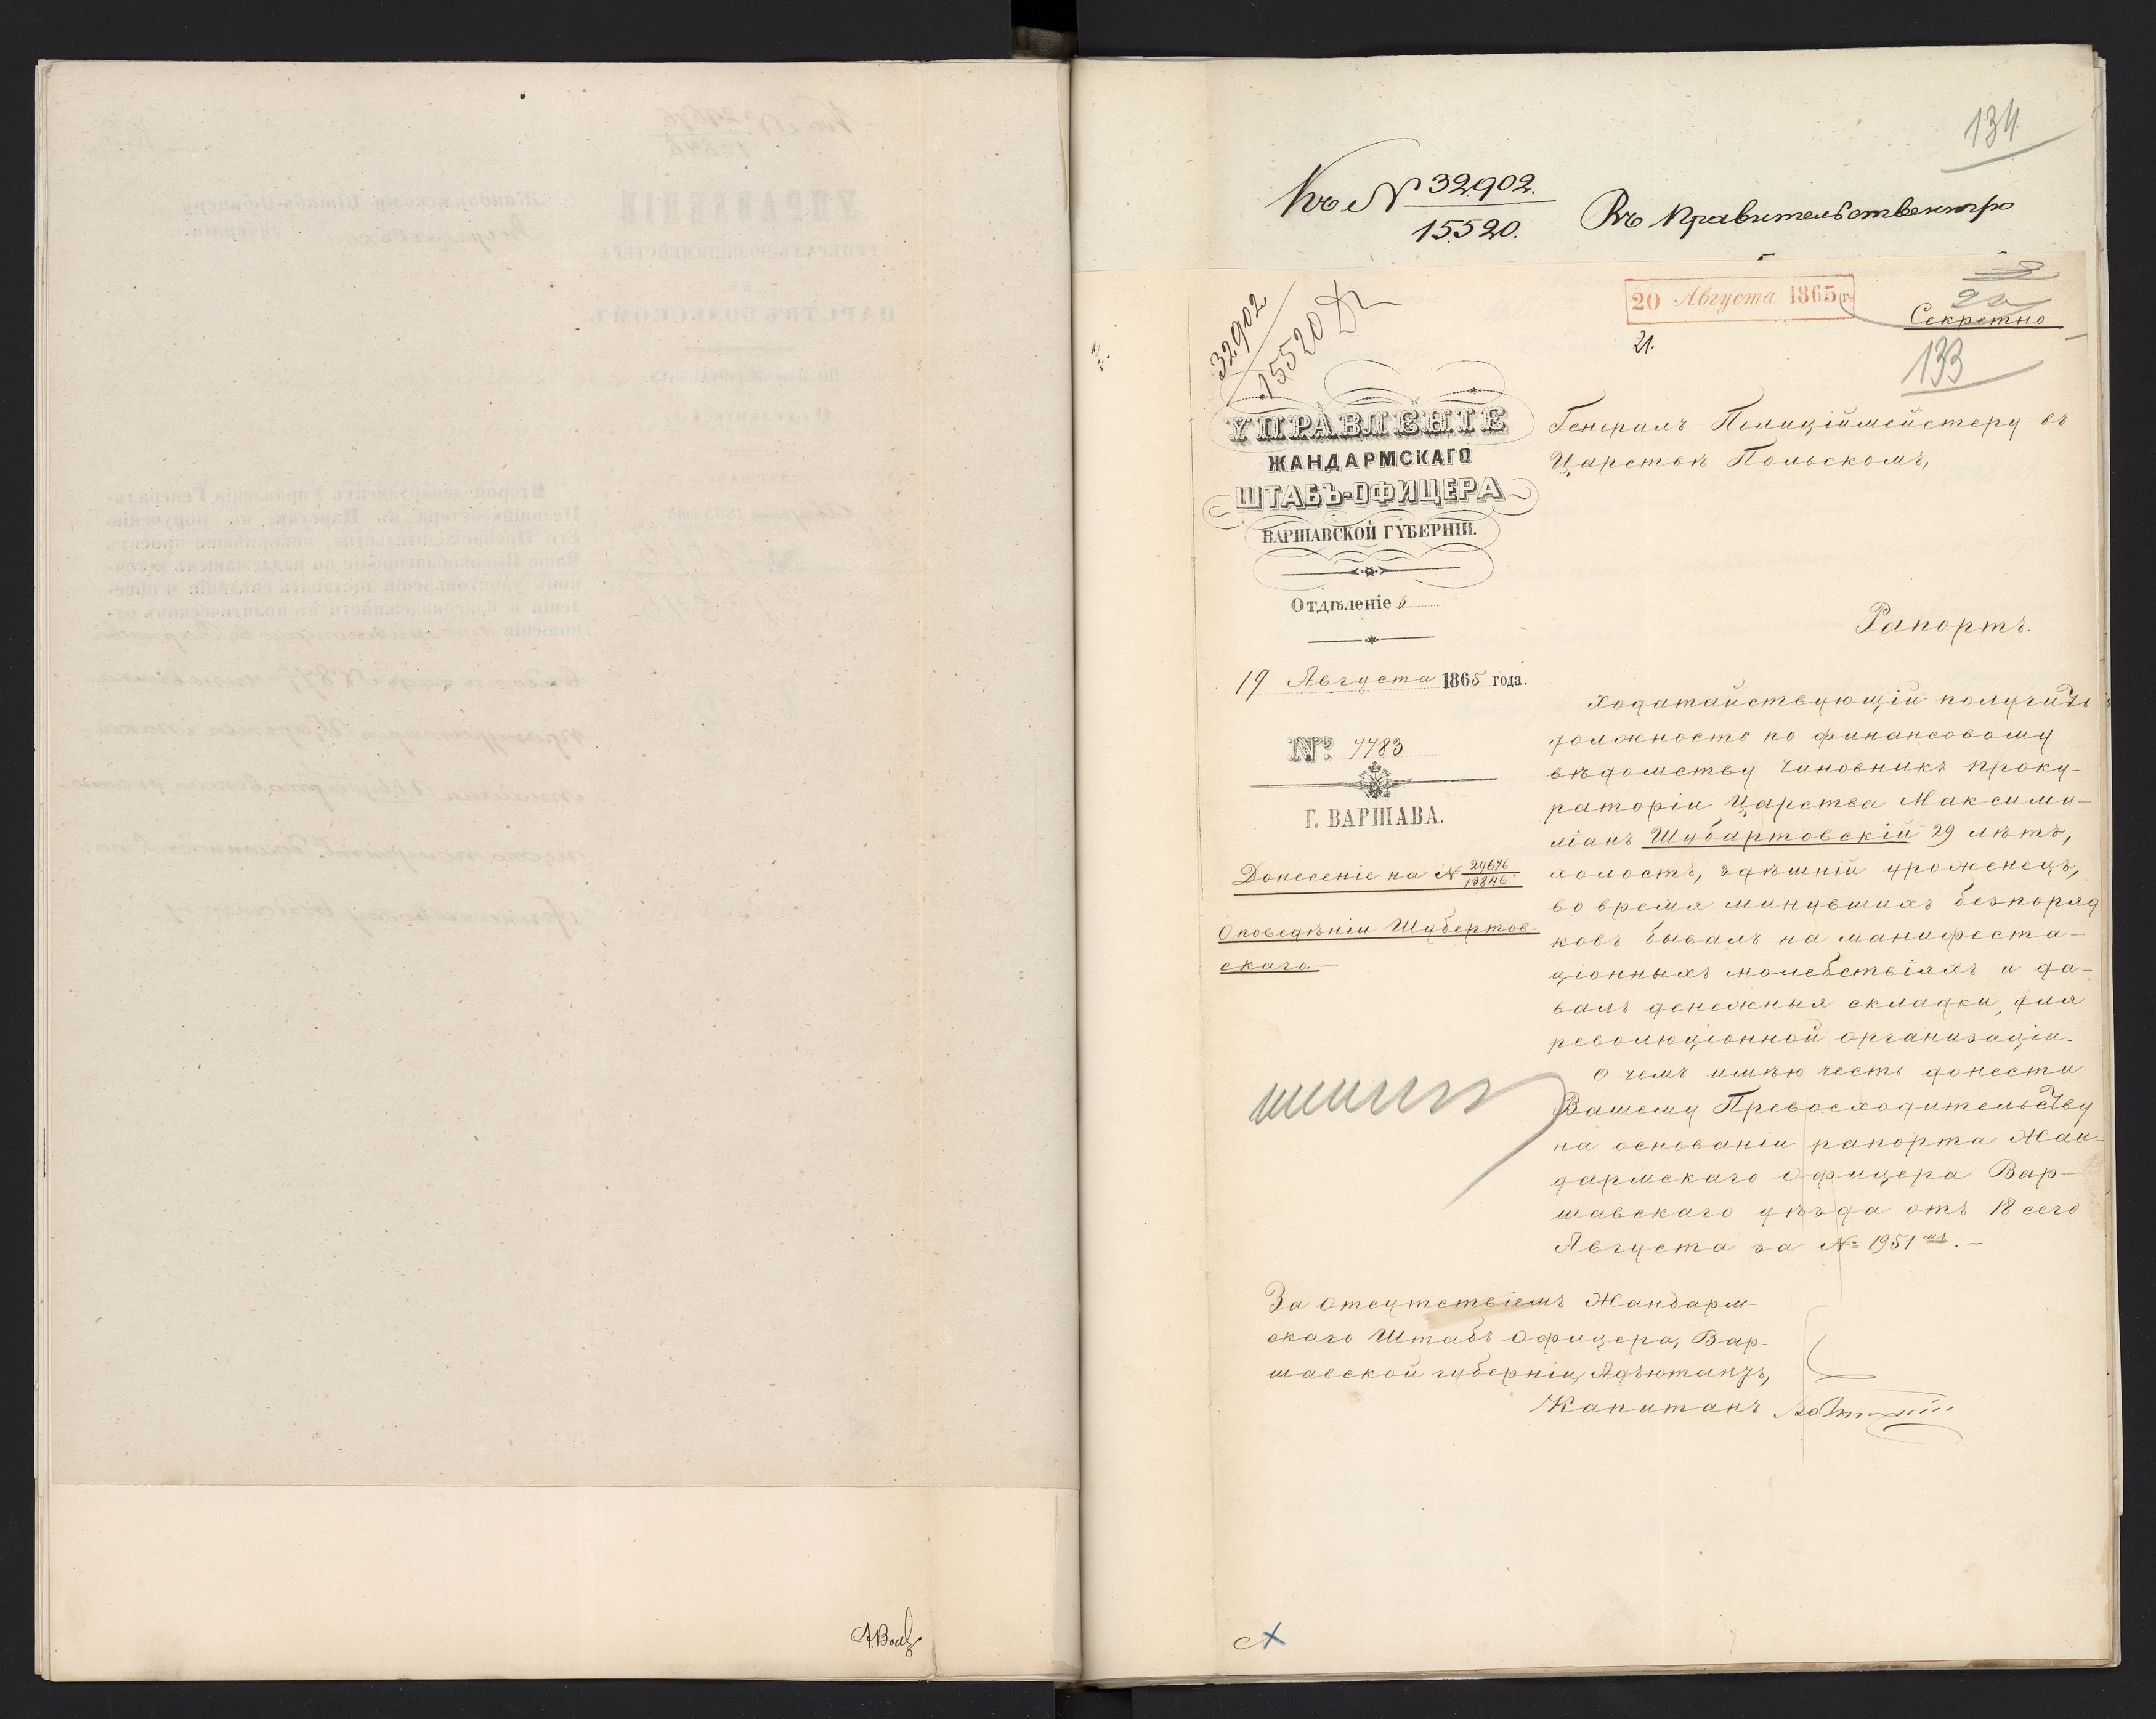 134
Къ № 32902.
15520.
Въ Правительствен
32902
15520
20 Августа 1865 г.
21.
Секретно
133
УПРАВЛЕНІЕ
ЖАНДАРМСКАГО
ШТАБЪ-ОФИЦЕРА
ВАРШАВСКОЙ ГУБЕРНІИ.
Отдѣленіе
19 Августа 1865 года.
№ 7783
Г. ВАРШАВА.
Донесеніе на № 29676
13846
О поведѣніи Шубертов-
скаго.—
Генералъ Полиціймейстеру въ
Царствѣ Польскомъ,
Рапортъ.
Ходатайствующій получить
должность по финансовому
вѣдомству Чиновникъ проку-
раторіи Царства Максими-
ліанъ Шубартовскій 29 лѣтъ,
холостъ, здѣшній уроженецъ,
во время минувшихъ безпоряд
ковъ бывалъ на манифеста-
ціонныхъ молебствіяхъ и да-
валъ денежныя складки, для
революціонной организаціи.
О чемъ имѣю честь донести
Вашему Превосходительству
на основаніи рапорта Жан-
дармскаго Офицера Вар-
шавскаго уѣзда отъ 18 сего
Августа за № 1951мъ.—
За отсутствіемъ Жандарм-
скаго Штабъ Офицера, Вар-
шавской губерніи, Адъютантъ,
Капитанъ